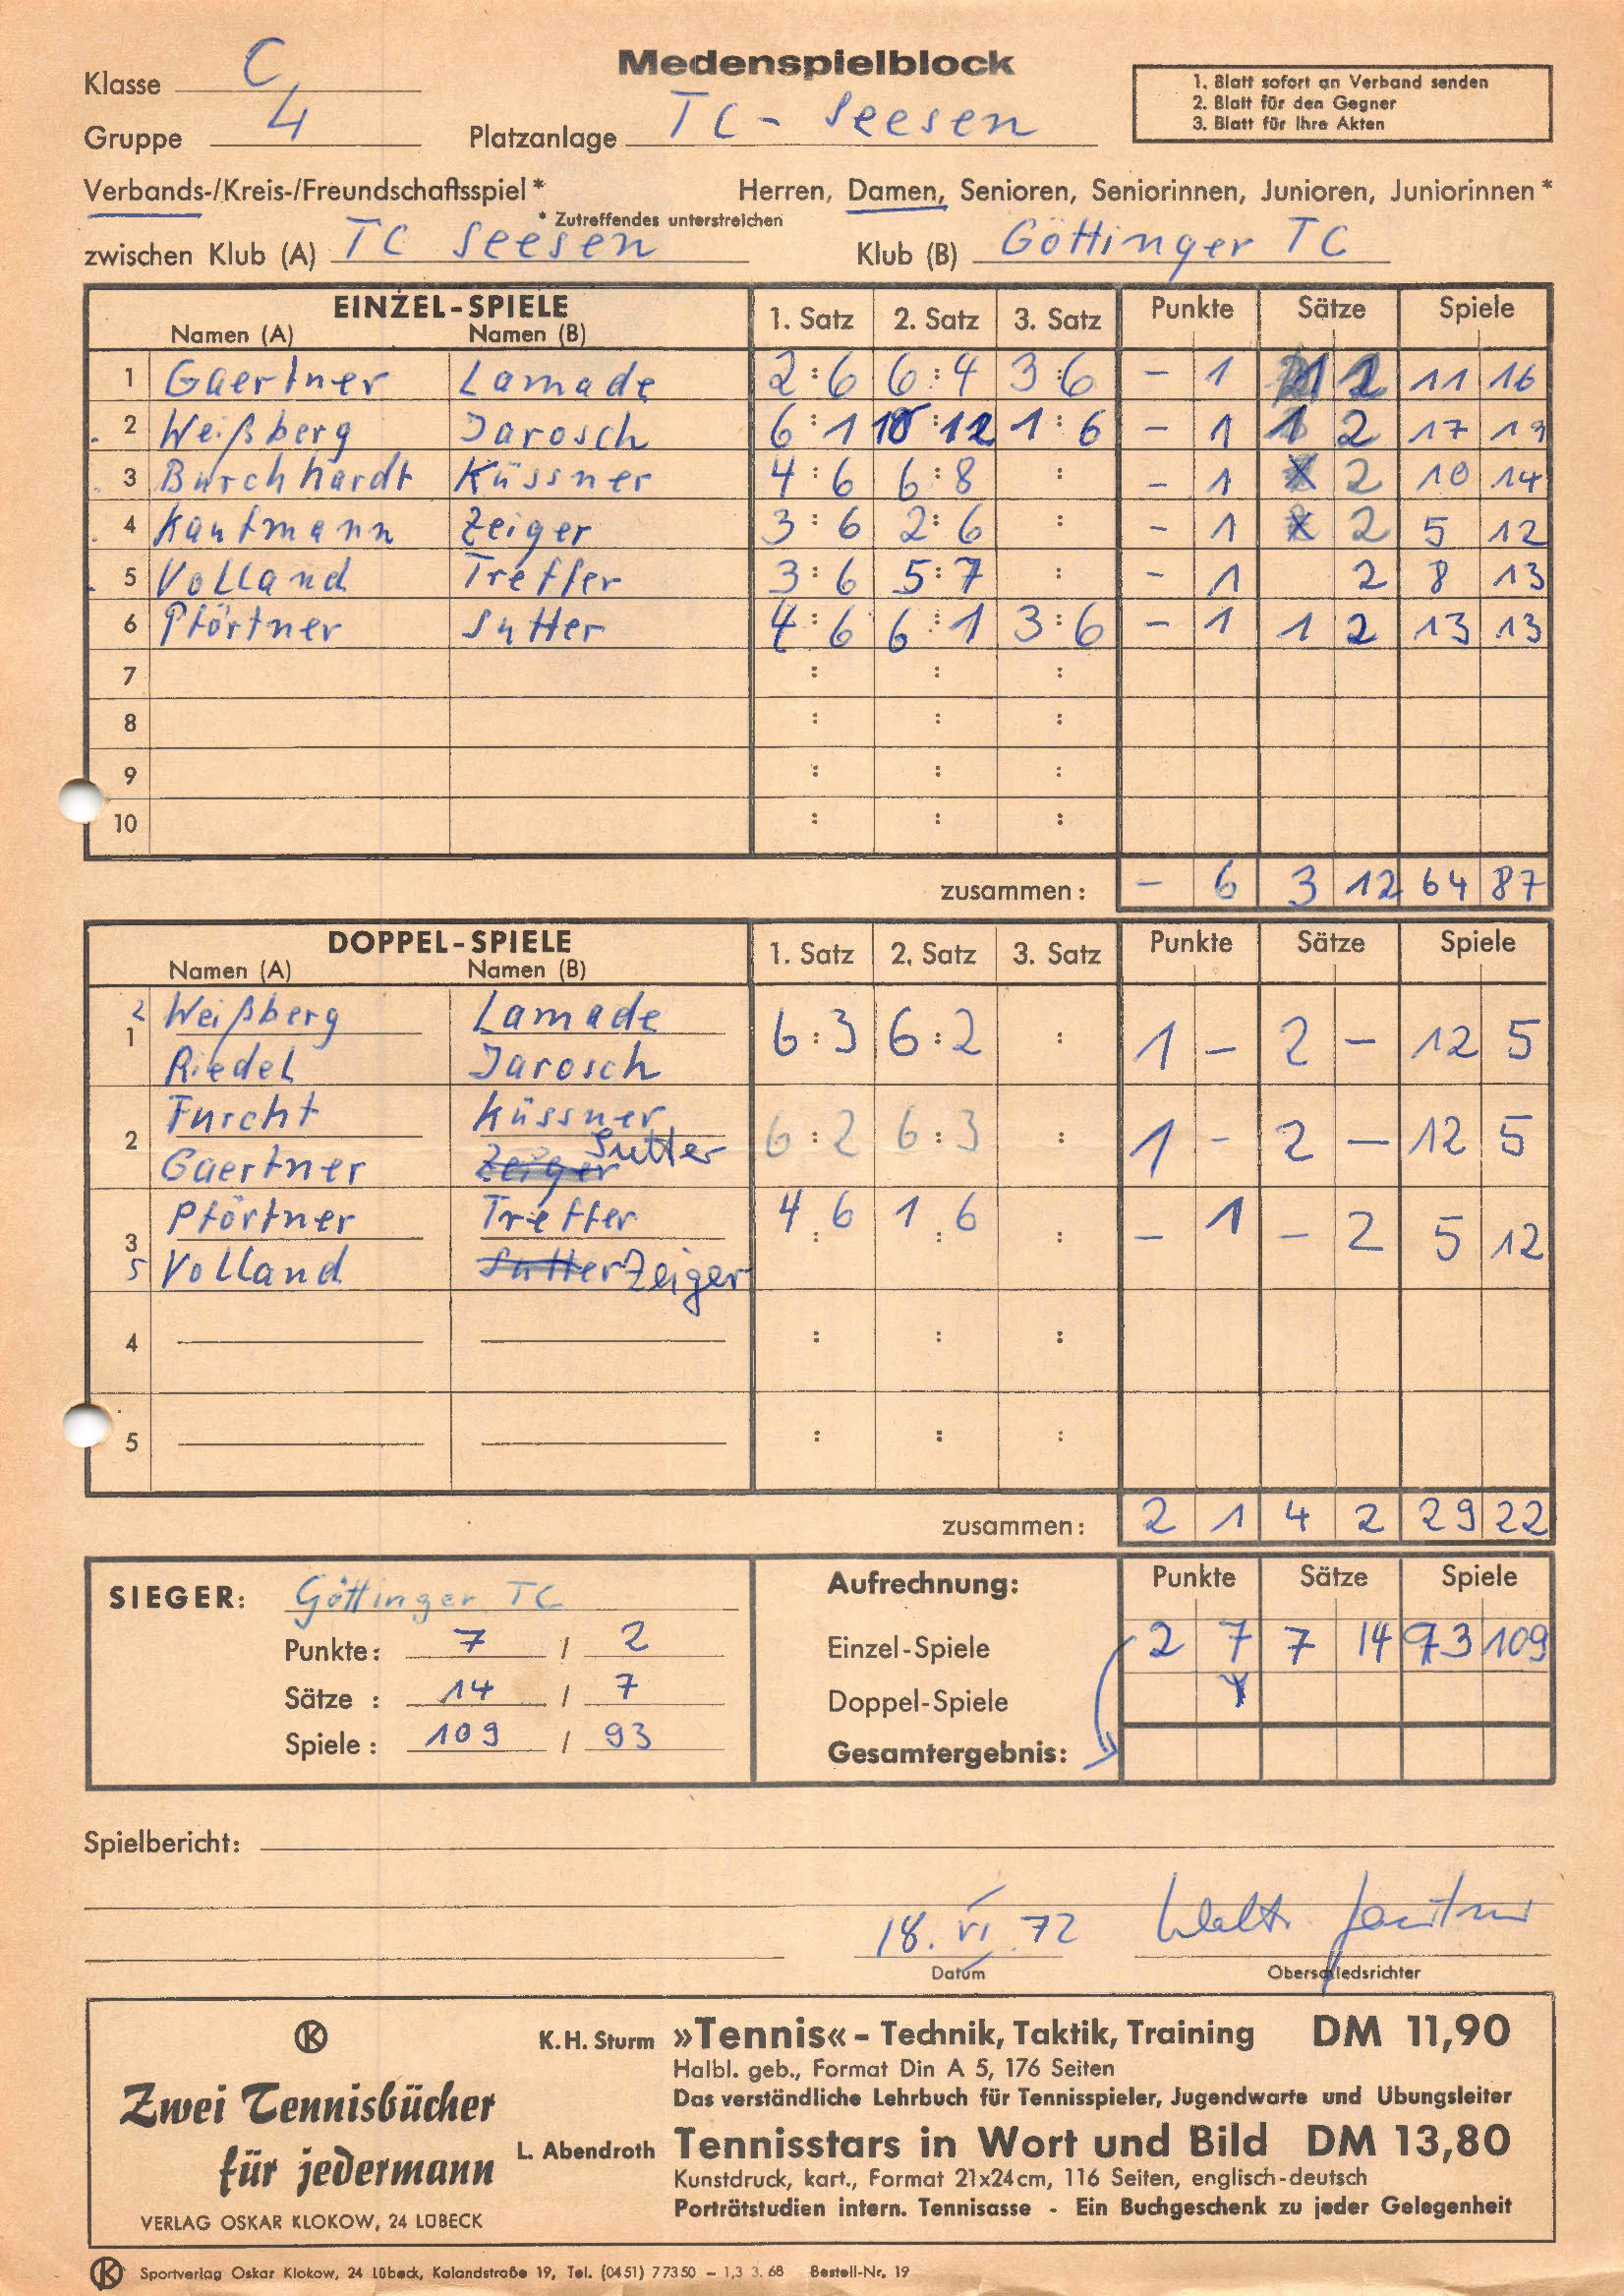 Klasse C
Medenspielblock
1. Blatt sofort an Verband senden
2. Blatt für den Gegner
3. Blatt für Ihre Akten
Gruppe 4 Platzanlage TC - Seesen
Verbands-/Kreis-/Freundschaftsspiel* Herren, Damen, Senioren, Seniorinnen, Junioren, Juniorinnen*
* Zutreffendes unterstreichen
zwischen Klub (A) TC Seesen Klub (B) Göttinger TC
EINZEL-SPIELE 1. Satz 2. Satz 3. Satz Punkte Sätze Spiele
Namen (A) Namen (B)
1 Gaertner Lamade 2:6 6:4 3:6 - 1 1 2 11 16
2 Weißberg Jarosch 6:1 10:12 1:6 - 1 1 2 17 19
3 Burchhardt Küssner 4:6 6:8 : - 1 2 10 14
4 Kaufmann Zeiger 3:6 2:6 : - 1 2 5 12
5 Volland Treffer 3:6 5:7 : - 1 2 8 13
6 Pförtner Sutter 4:6 6:1 3:6 - 1 1 2 13 13
7 : : :
8 : : :
9 : : :
10 : : :
zusammen: - 6 3 12 64 87
DOPPEL-SPIELE 1. Satz 2. Satz 3. Satz Punkte Sätze Spiele
Namen (A) Namen (B)
2 Weißberg Lamade
1 6:3 6:2 : 1 - 2 - 12 5
Riedel Jarosch
Furcht Küssner
2 6:2 6:3 : 1 - 2 - 12 5
Gaertner Zeiger Sutter
Pförtner Treffer
3 4:6 1:6 : - 1 - 2 5 12
5 Volland Sutter Zeiger
4 : : :
5 : : :
zusammen: 2 1 4 2 29 22
SIEGER: Göttinger TC
Punkte: 7 / 2
Sätze: 14 / 7
Spiele: 109 / 93
Aufrechnung: Punkte Sätze Spiele
Einzel-Spiele 2 7 7 14 93 109
Doppel-Spiele
Gesamtergebnis:
Spielbericht:
18. VI. 72
Datum Oberschiedsrichter
K
Zwei Tennisbücher
für jedermann
VERLAG OSKAR KLOKOW, 24 LÜBECK
K. H. Sturm »Tennis« - Technik, Taktik, Training DM 11,90
Halbl. geb., Format Din A 5, 176 Seiten
Das verständliche Lehrbuch für Tennisspieler, Jugendwarte und Übungsleiter
L. Abendroth Tennisstars in Wort und Bild DM 13,80
Kunstdruck, kart., Format 21x24cm, 116 Seiten, englisch-deutsch
Porträtstudien intern. Tennisasse - Ein Buchgeschenk zu jeder Gelegenheit
K Sportverlag Oskar Klokow, 24 Lübeck, Kalandstraße 19, Tel. (0451) 77350 - 1,3 3. 68 Bestell-Nr. 19